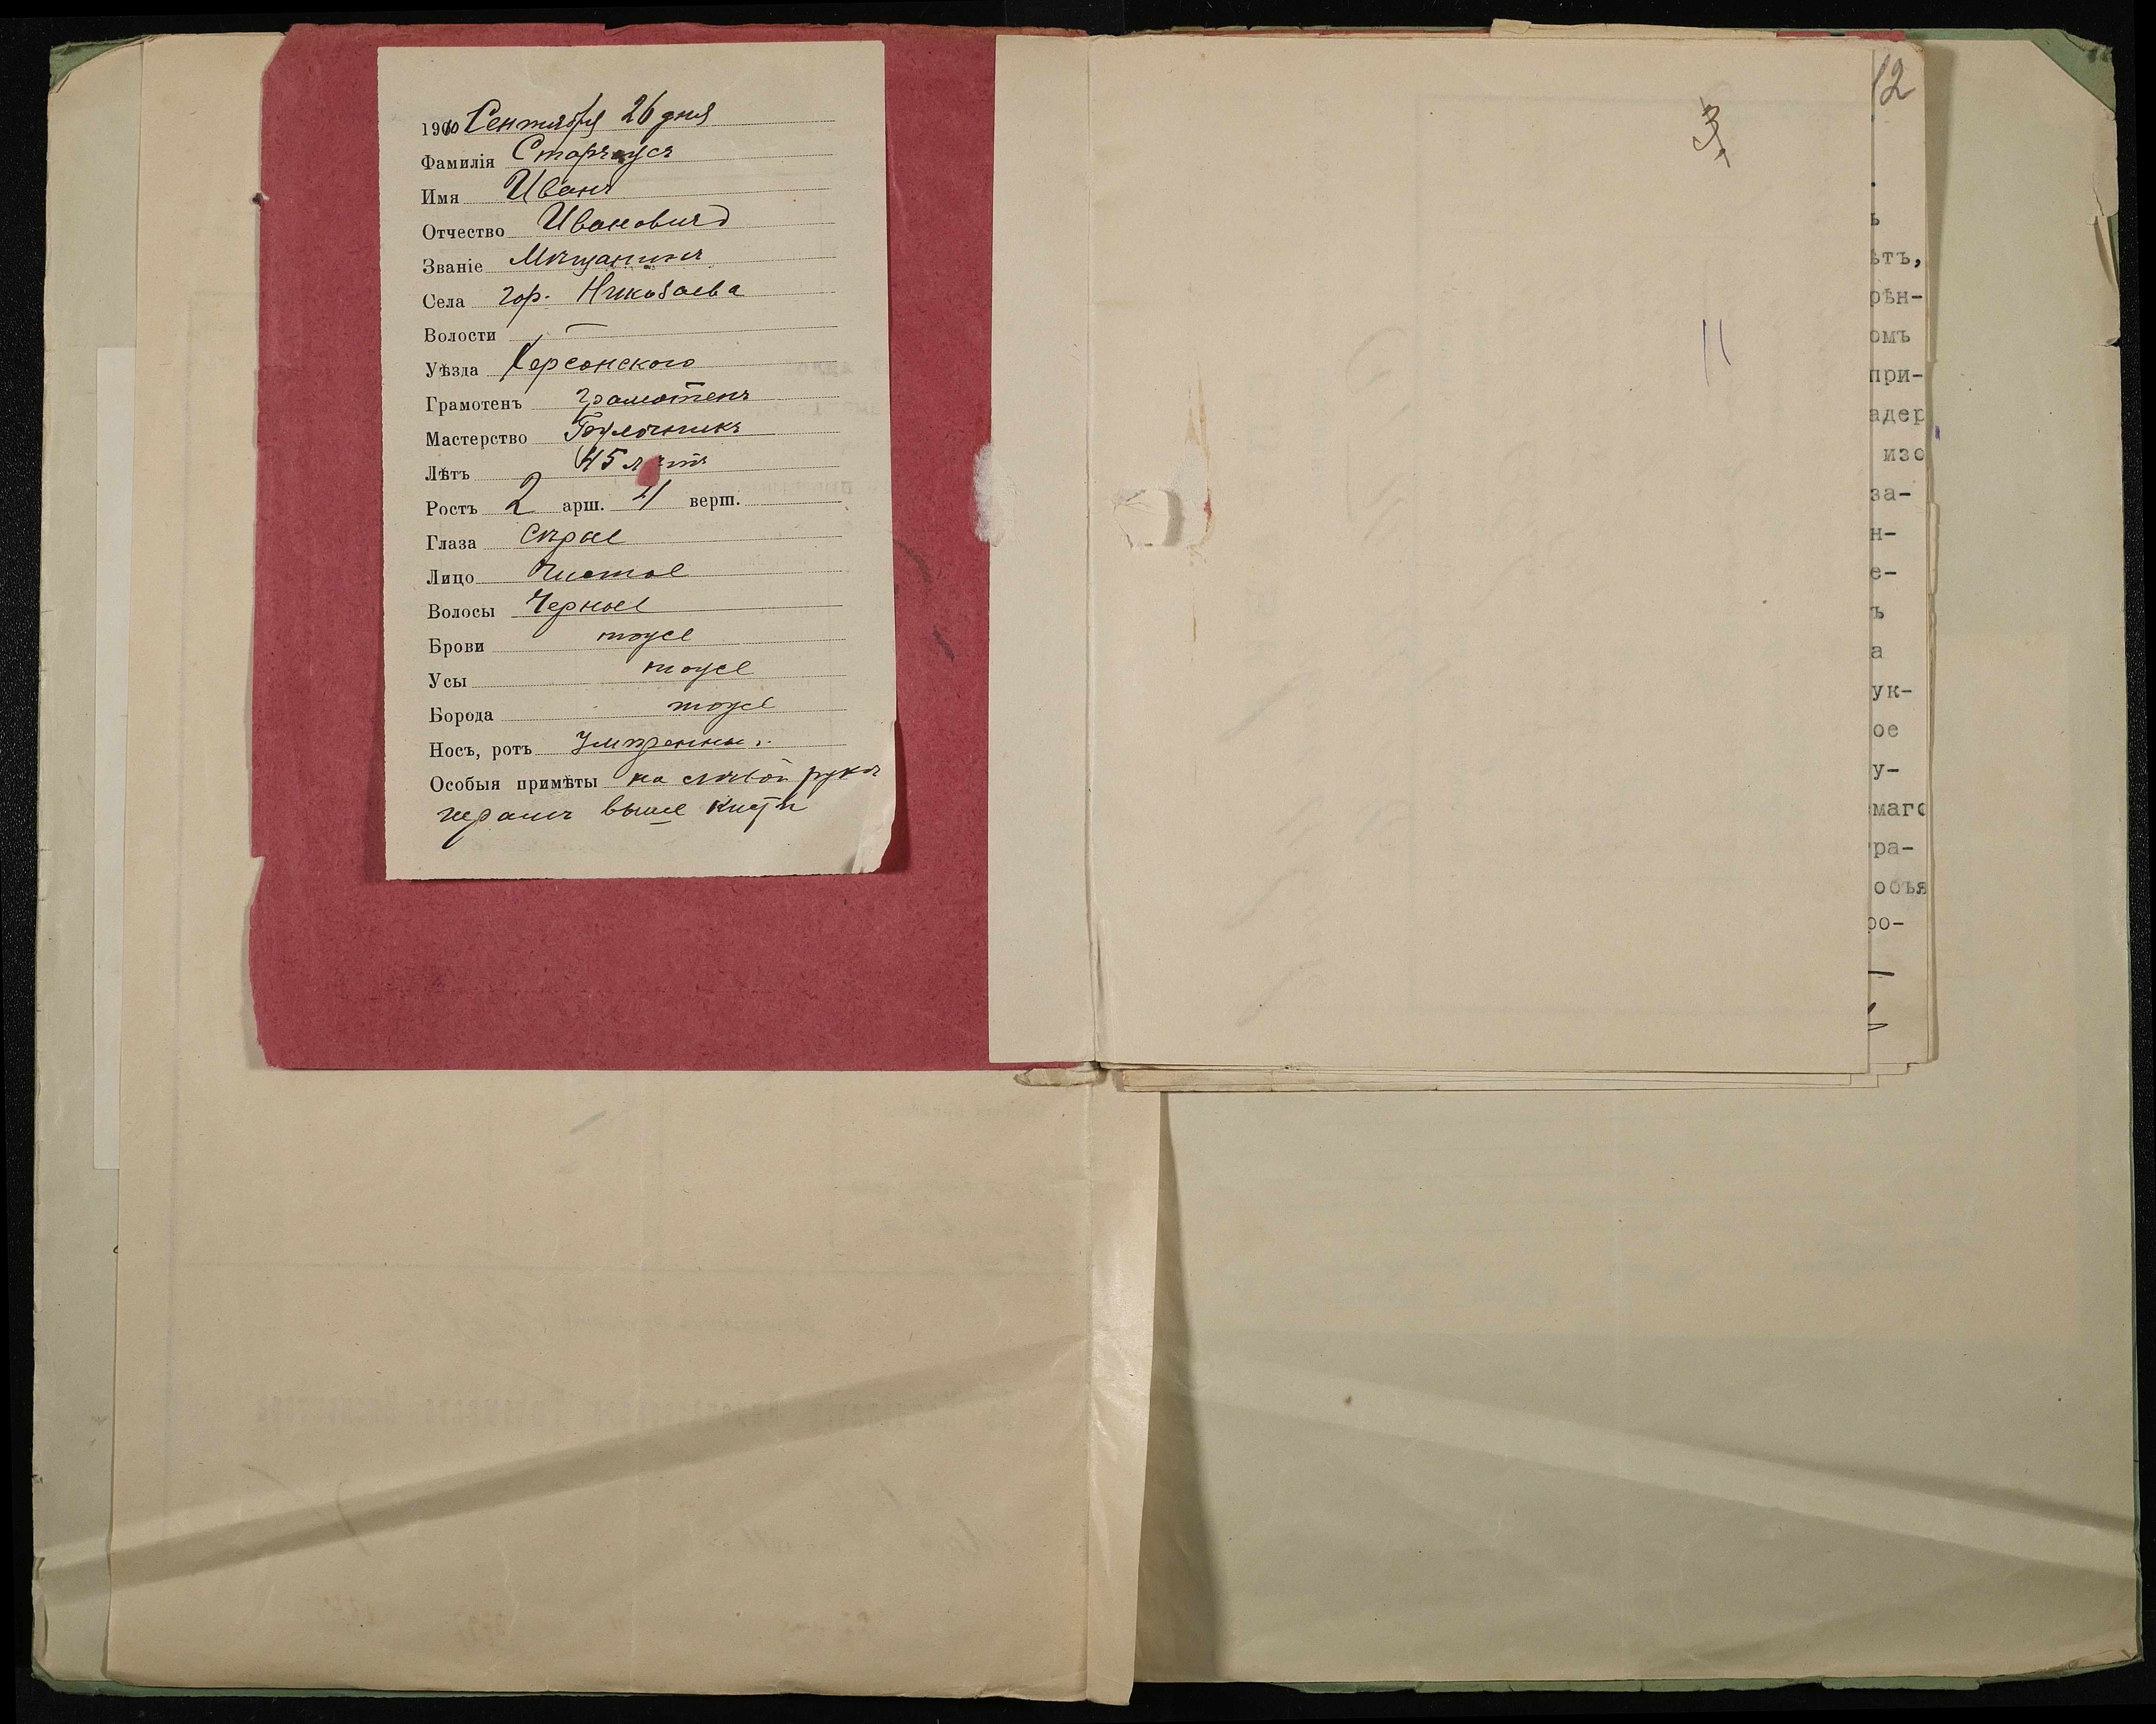 1910 Сентября 26 дня
Фамилія Старчусъ
Имя Иванъ
Отчество Ивановичъ
Званіе Мѣщанинъ
Села гор. Николаева
Волости —
Уѣзда Херсонского
Грамотенъ грамотенъ
Мастерство Булочникъ
Лѣтъ 45 лѣтъ
Ростъ 2 арш. 4 верш.
Глаза Сѣрые
Лицо Чистое
Волосы Черные
Брови тоже
Усы тоже
Борода тоже
Носъ, ротъ Умѣренны.
Особыя примѣты на лѣвой рукѣ
шрамъ выше кисти
3
11
12
ъ
ѣтъ,
рѣн-
омъ
при-
адер
изо
за-
н-
е-
ъ
а
ук-
ое
у-
маго
ра-
объя
ро-